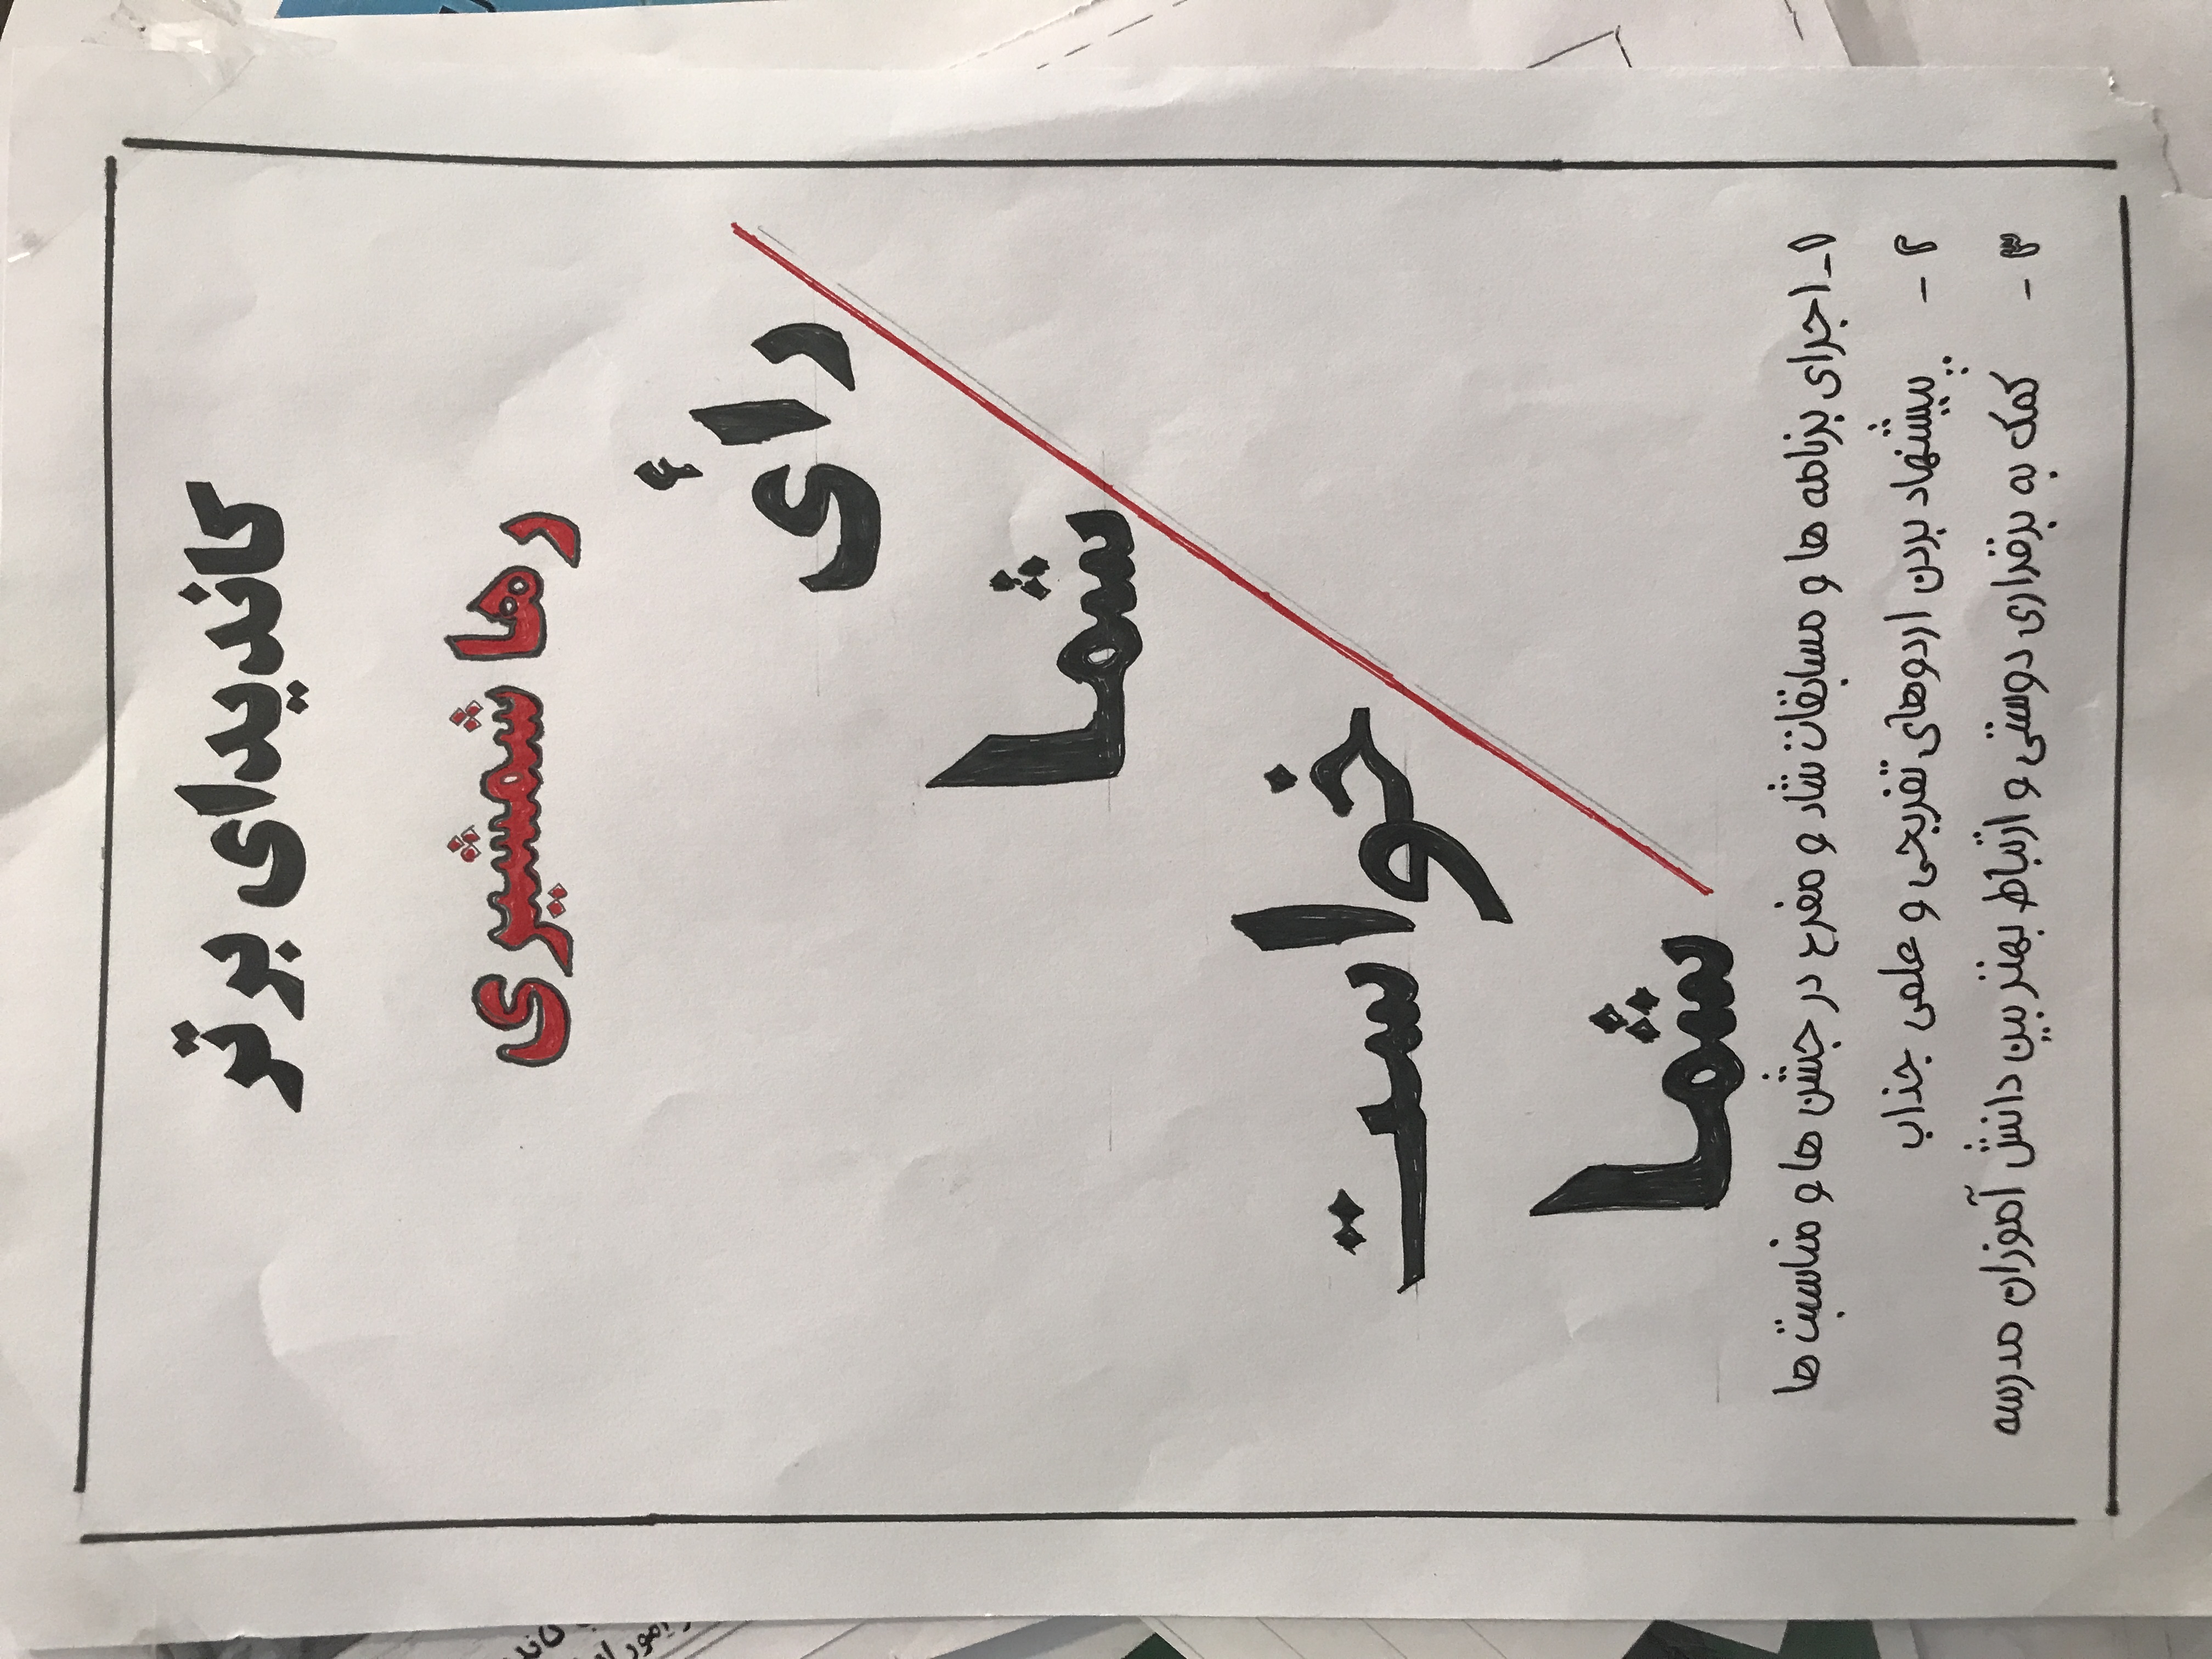 کاندیدای برتر
رها شمشیری
رأی
شما
خواست
شما
۱- اجرای برنامه ها و مسابقات شاد و مفرح در جشن ها و مناسبت ها
۲- پیشنهاد بردن اردوهای تفریحی و علمی جذاب
۳- کمک به برقراری دوستی و ارتباط بهتر بین دانش آموزان مدرسه